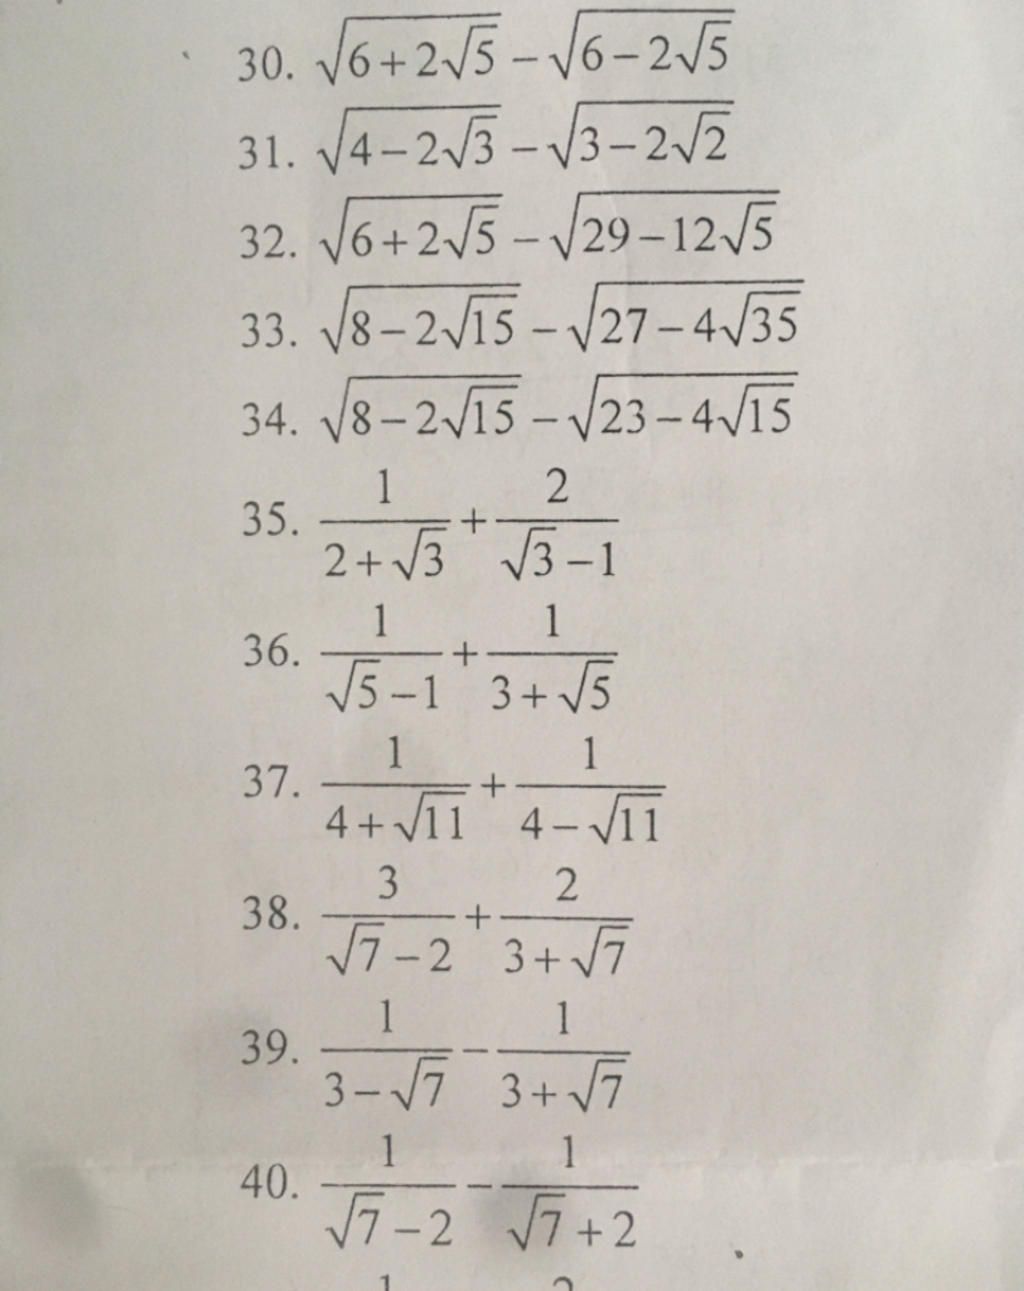 30. √(6+2√5) − √(6−2√5)
31. √(4−2√3) − √(3−2√2)
32. √(6+2√5) − √(29−12√5)
33. √(8−2√15) − √(27−4√35)
34. √(8−2√15) − √(23−4√15)
35. 1/(2+√3) + 2/(√3−1)
36. 1/(√5−1) + 1/(3+√5)
37. 1/(4+√11) + 1/(4−√11)
38. 3/(√7−2) + 2/(3+√7)
39. 1/(3−√7) − 1/(3+√7)
40. 1/(√7−2) − 1/(√7+2)